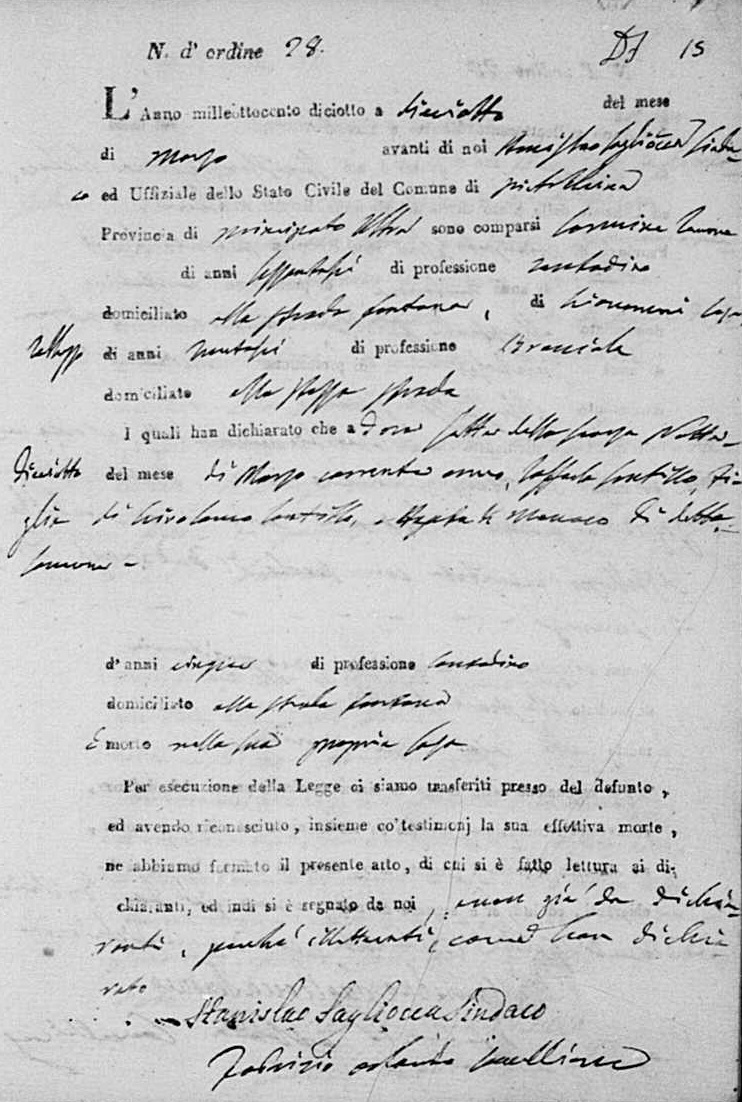 N. d'ordine 28. 15
L'Anno milleottocento diciotto a diciotto del mese
di Marzo avanti di noi Stanislao Sagliocca Sinda=
co ed Uffiziale dello Stato Civile del Comune di
Provincia di principato Ultra sono comparsi Carmine
di anni di professione contadino
domiciliato alla strada fontana, di Giovanni
di anni di professione Bracciale
domiciliato alla stessa strada
I quali han dichiarato che a sette della
diciotto del mese di Marzo corrente anno, fi=
glia di Girolamo di detto
comune =
d'anni cinque di professione contadino
domiciliato alla strada fontana
È morto nella sua propria casa
Per esecuzione della Legge ci siamo trasferiti presso del defunto,
ed avendo riconosciuto, insieme co' testimonj la sua effettiva morte,
ne abbiamo formato il presente atto, di cui si è fatto lettura ai di-
chiaranti, ed indi si è segnato da noi, e non già da dichia=
ranti, perché illetterati, come han dichia=
rato
Stanislao Sagliocca Sindaco
Fabrizio Orlando Cancelliere